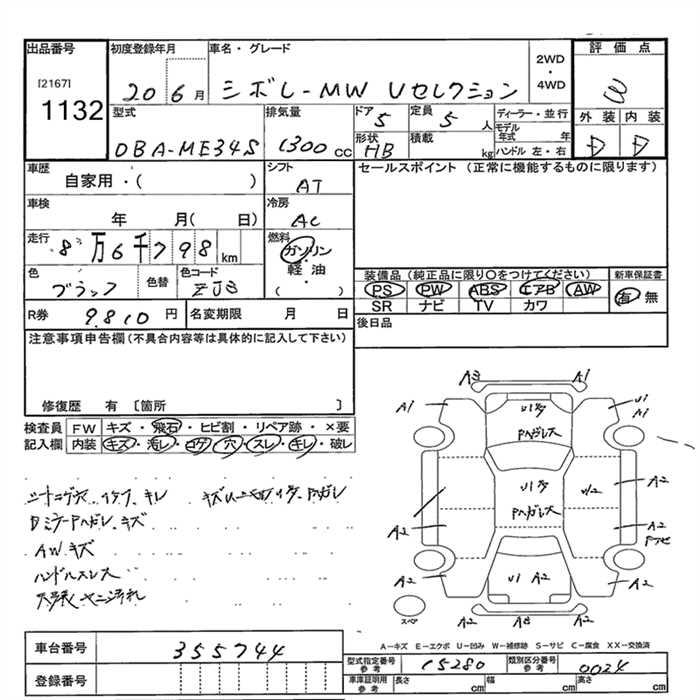 出品番号
[2167]
1132
初度登録年月
20 6月
車名・グレード
シボレ-MW Vセレクション
2WD・4WD
評価点
3
型式
DBA-ME34S
排気量
1300cc
ドア
5
定員
5人
ディーラー・並行
モデル年式 年
ハンドル 左・右
形状
HB
積載
kg
外装 内装
D D
車歴
自家用・( )
シフト
AT
セールスポイント (正常に機能するものに限ります)
車検
年 月( 日)
冷房
AC
走行
8万6千798km
燃料
ガソリン・軽油・( )
色
ブラック
色替
色コード
ZJ3
装備品 (純正品に限り○をつけてください)
PS PW ABS エアB AW
SR ナビ TV カワ
新車保証書
有 無
R券
9.810円
名変期限 月 日
後日品
注意事項申告欄(不具合内容等は具体的に記入して下さい)
修復歴 有 〔箇所 〕
検査員記入欄
FW キズ・飛石・ヒビ割・リペア跡・×要
内装 キズ・汚レ・コゲ・穴・スレ・キレ・破レ
シートコゲ穴、キレ
DミラーPハガレ、キズ
AWキズ
ハンドルスレ
天張ヤニ汚れ
A3 A1
A1 U1 A1
Pハガレス
Pハガレス
A2
U2
A2
A2
A2
A2
U1 A2
A2
A2 A3 A2
スペア
A-キズ E-エクボ U-凹み W-補修跡 S-サビ C-腐食 XX-交換済
車台番号
355744
登録番号
型式指定番号 参考
15280
類別区分番号 参考
0024
車庫証明用 参考
長さ cm 幅 cm 高さ cm